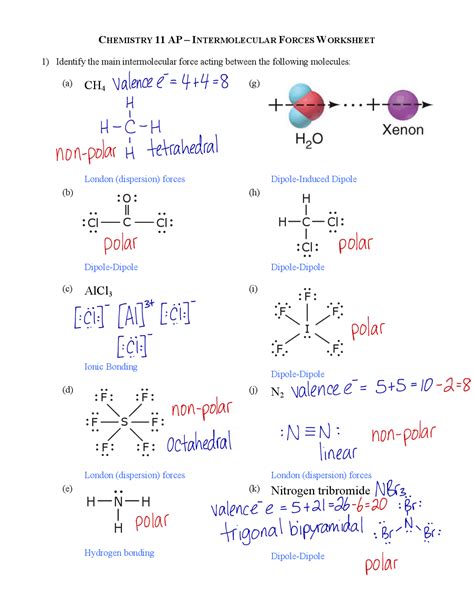 CHEMISTRY 11 AP – INTERMOLECULAR FORCES WORKSHEET
1) Identify the main intermolecular force acting between the following molecules:
(a) CH4 valence e⁻ = 4+4=8
H
H-C-H
non-polar H tetrahedral
London (dispersion) forces
(g)
H2O
Xenon
Dipole-Induced Dipole
(b)
:O:
:Cl — C — Cl:
polar
Dipole-Dipole
(h)
H
H—C—Cl:
:Cl: polar
Dipole-Dipole
(c) AlCl3
[:Cl:]⁻ [Al]³⁺ [:Cl:]⁻
[:Cl:]⁻
Ionic Bonding
(i)
:F:
:F F:
I polar
:F F:
Dipole-Dipole
(d)
:F: :F:
non-polar
:F—S—F:
octahedral
:F: :F:
London (dispersion) forces
(j) N2 valence e⁻ = 5+5=10-2=8
:N≡N: non-polar
linear
London (dispersion) forces
(e)
H—N—H
H polar
Hydrogen bonding
(k) Nitrogen tribromide NBr3
valence e⁻ = 5+21=26-6=20 :Br:
trigonal bipyramidal :Br-N-Br:
Dipole-Dipole
polar